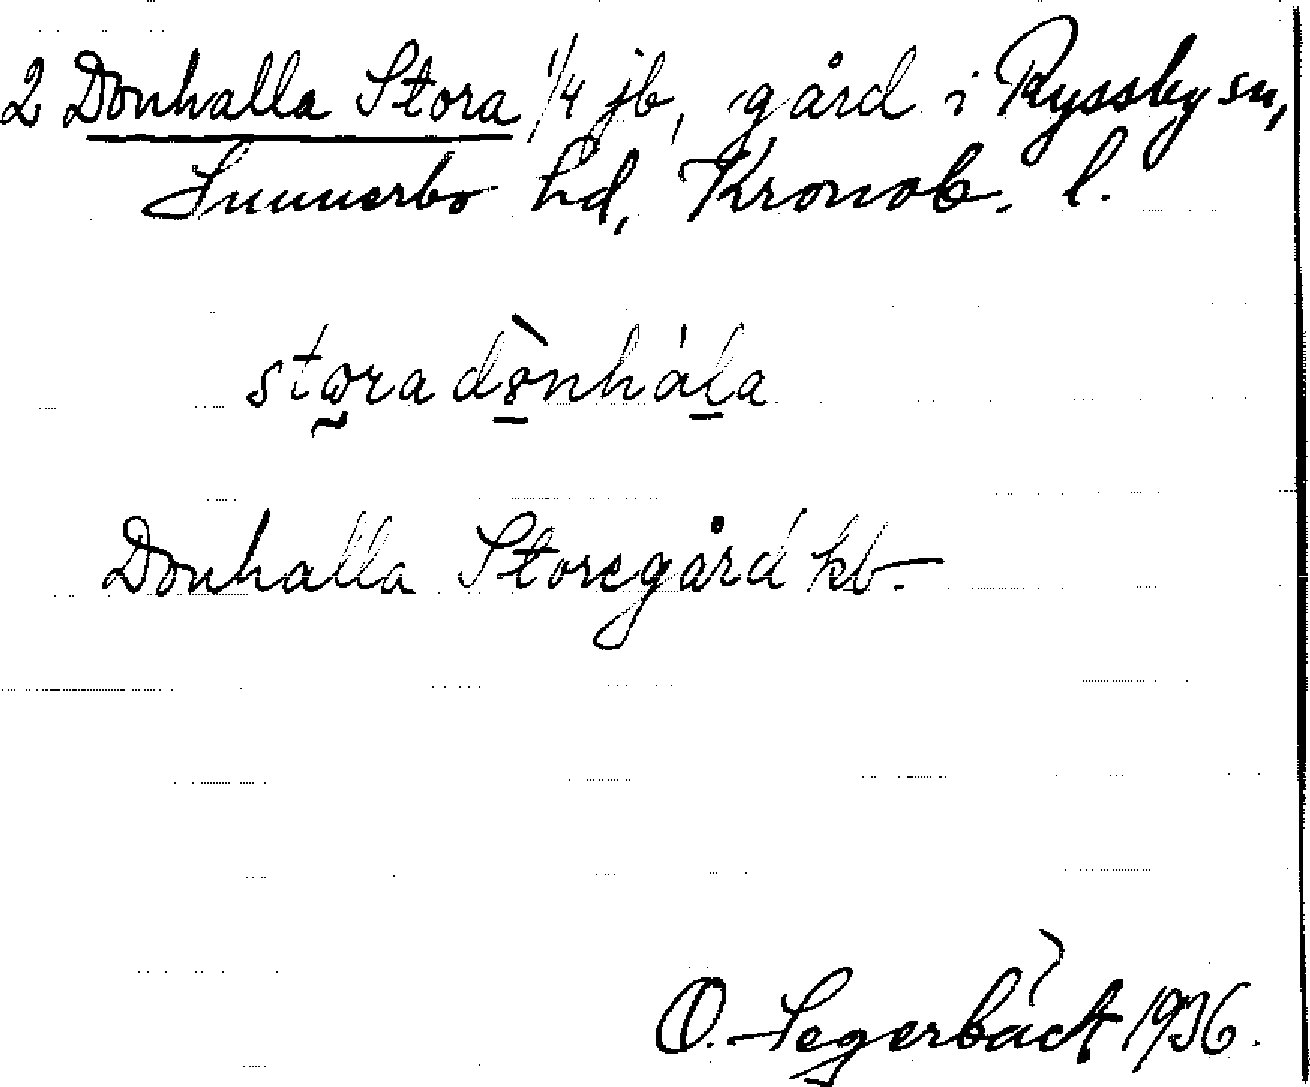 2 Donhalla Stora 1/4 jb, gård i Ryssby sn,
Sunnerbo hd, Kronob. l.
stora dònhála
Donhalla Storegård kb.
O. Segerbäck 1936.